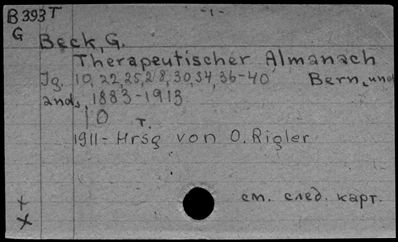 B 393 T -1-
G Beck, G.
Therapeutischer Almanach
Jg. 10, 22, 25, 28, 30, 34, 36-40 Bern, und
and, 1883-1913
10 т.
1911- Hrsg von O. Rigler
см. след. карт.
+
x